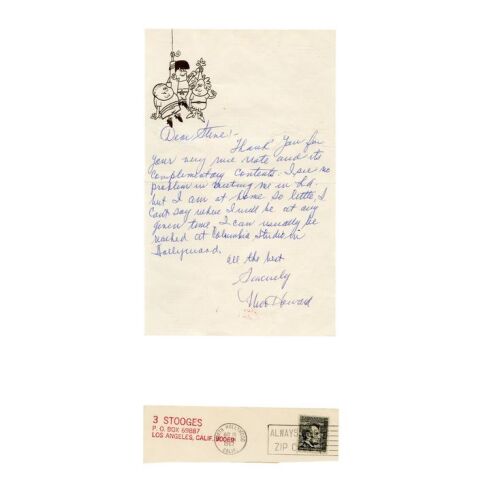 Dear Steve:-
Thank You for
your very nice note and its
complimentary contents. I see no
problem in meeting me in L.A.
but I am at home so little, I
can't say where I will be at any
given time. I can usually be
reached at Columbia Studio in
Hollywood.
All the best
Sincerely
Moe Howard
3 STOOGES
P. O. BOX 69887
LOS ANGELES, CALIF. 90069
NORTH HOLLYWOOD
CALIF.
ALWAYS
ZIP